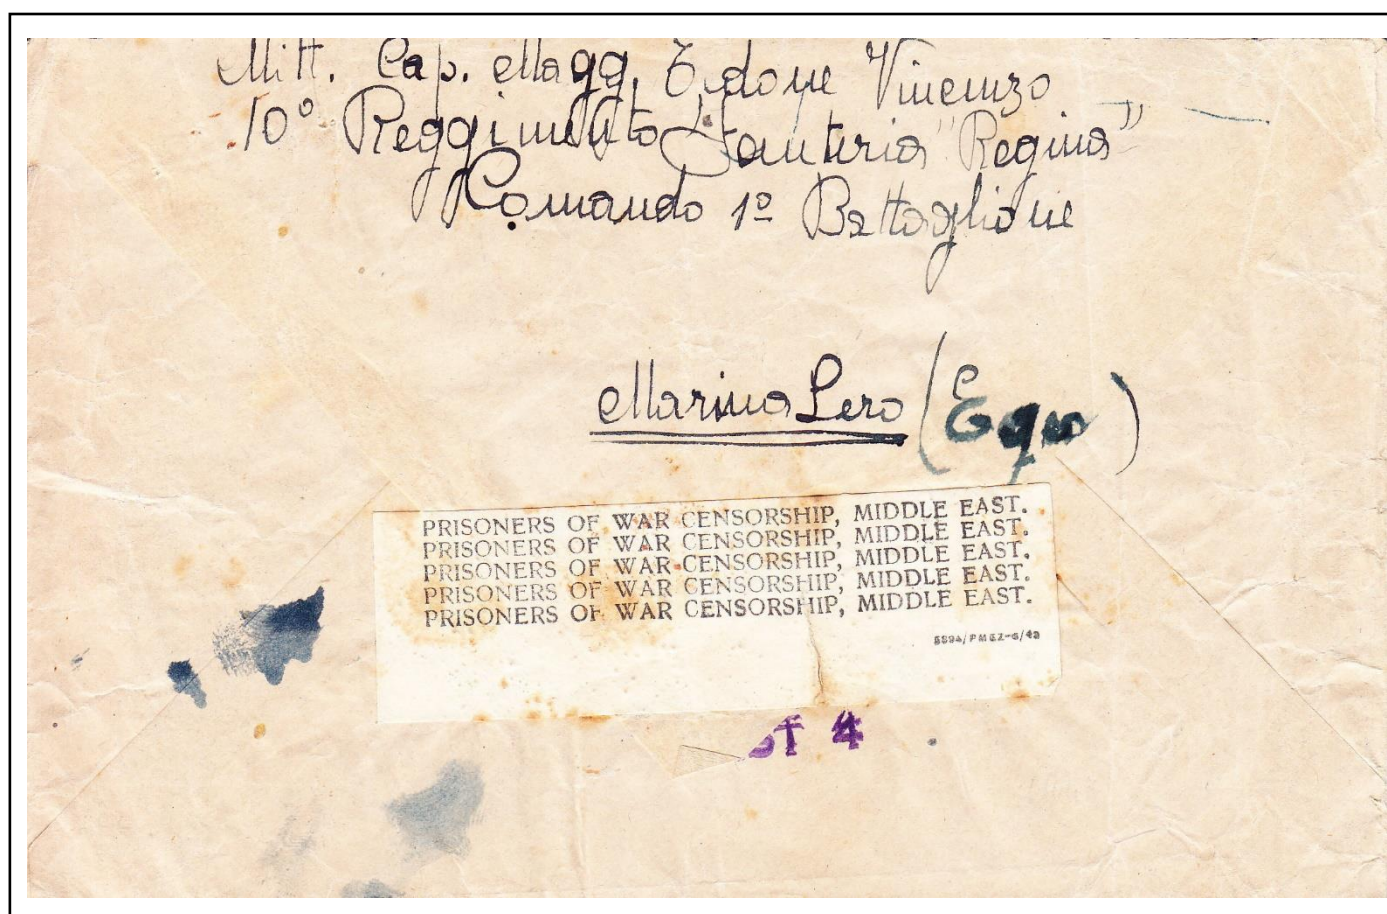 Mitt. Cap. Magg. Edone Vincenzo
10° Reggimento Fanteria "Regina"
Comando 1º Battaglione
Marina Lero (Egeo)
PRISONERS OF WAR CENSORSHIP, MIDDLE EAST.
PRISONERS OF WAR CENSORSHIP, MIDDLE EAST.
PRISONERS OF WAR CENSORSHIP, MIDDLE EAST.
PRISONERS OF WAR CENSORSHIP, MIDDLE EAST.
PRISONERS OF WAR CENSORSHIP, MIDDLE EAST.
ST 4